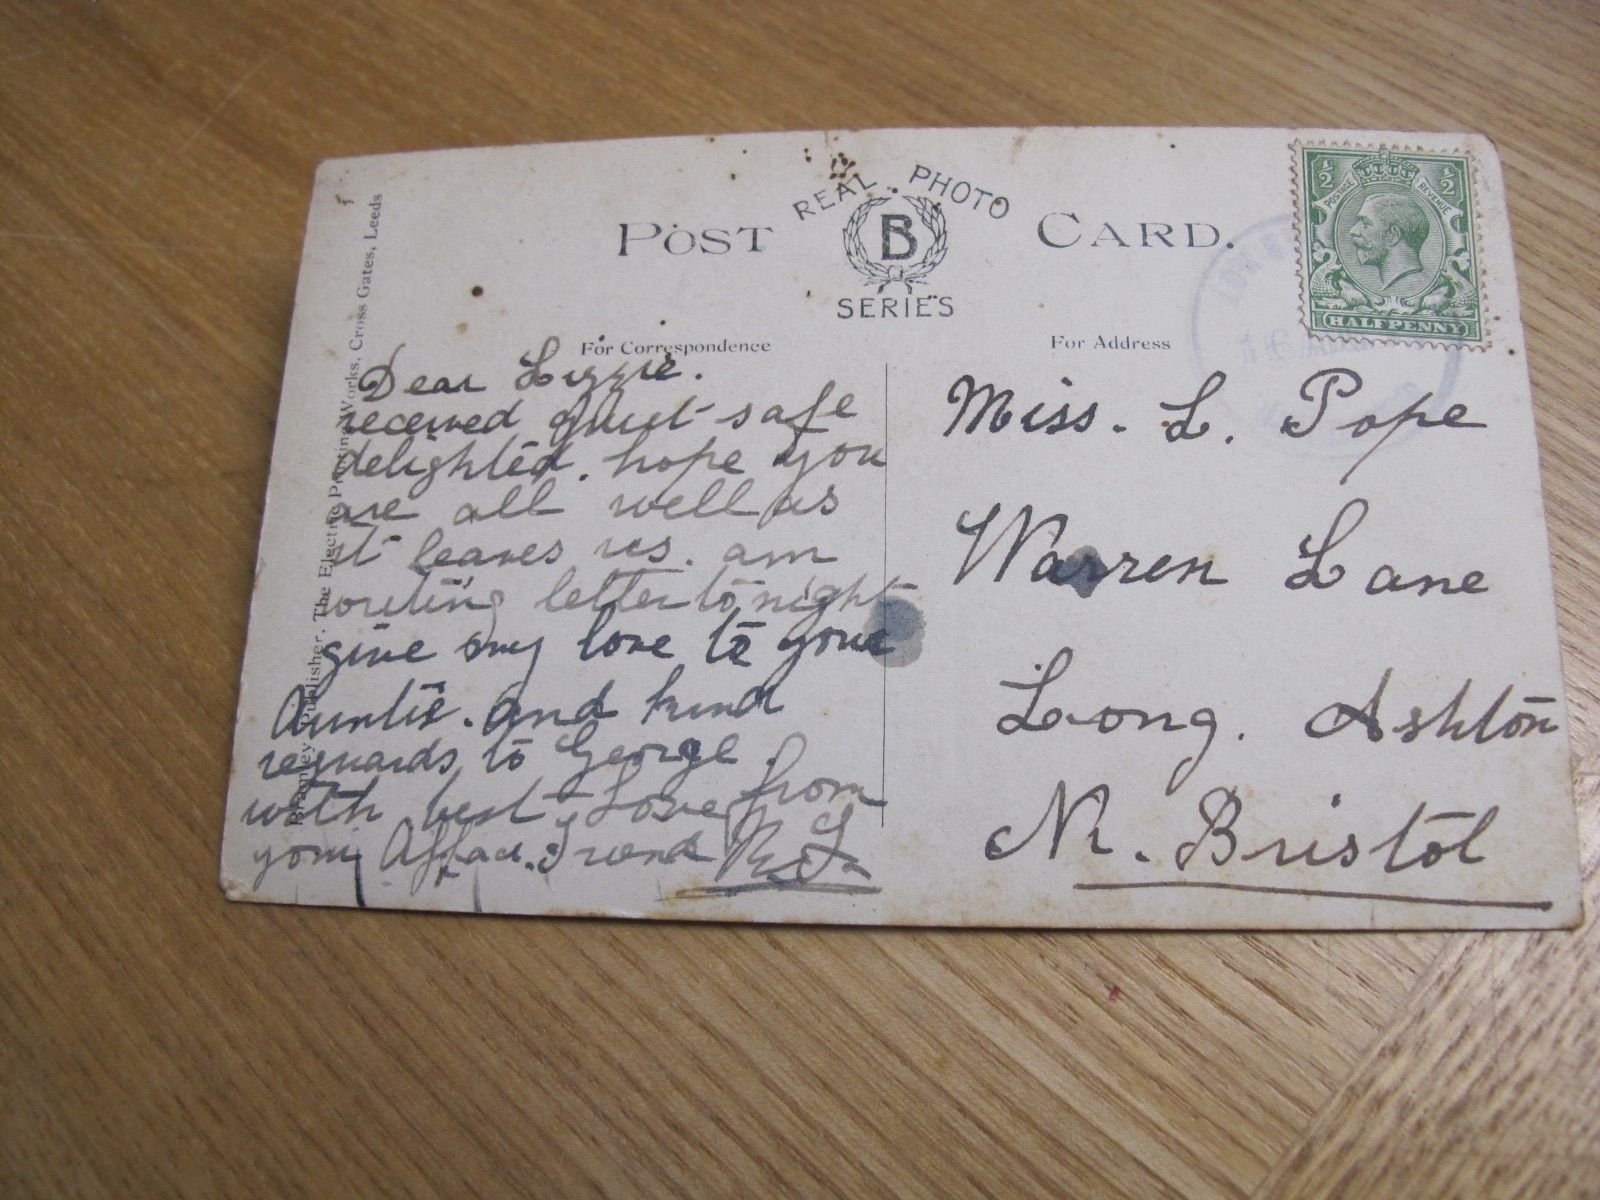 POST CARD.
REAL PHOTO
B
SERIES
½ ½
POSTAGE REVENUE
HALFPENNY
For Correspondence
For Address
Bramley Publisher. The Electric Printing Works. Cross Gates, Leeds
Dear Lizzie.
received safe
delighted. hope you
are all well as
it leaves us. am
writing letter to night
give my love to your
Auntie. and kind
reguards to George.
with best Love from
your Affec. Friend
Miss. L. Pope
Warren Lane
Long. Ashton
Nr. Bristol